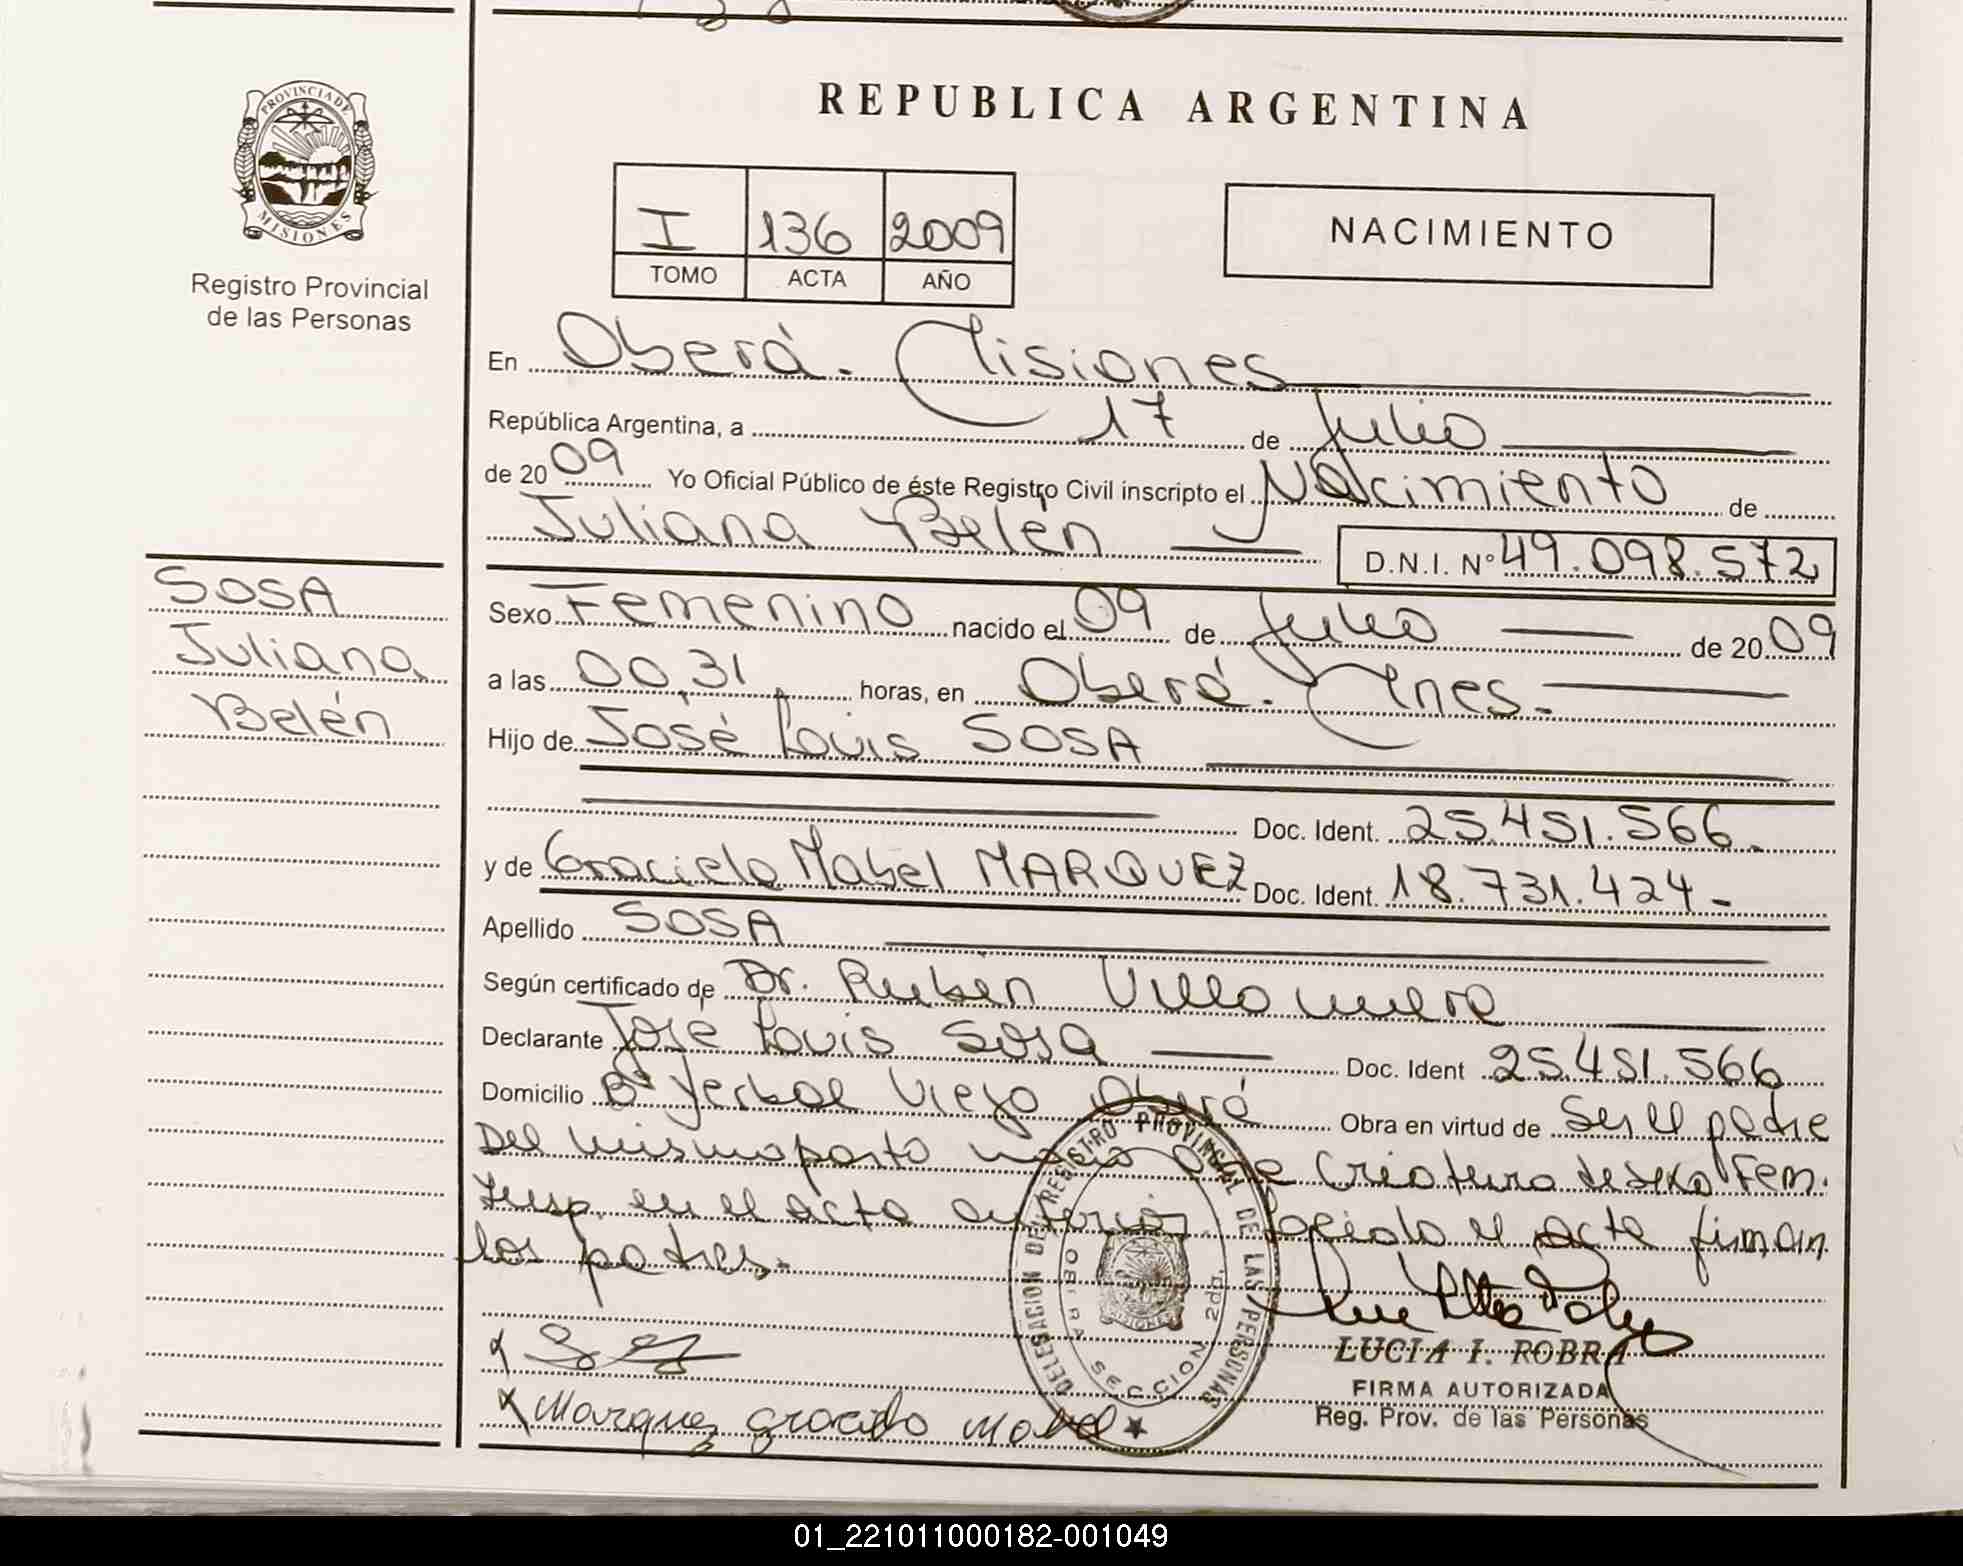 PROVINCIA DE
MISIONES
Registro Provincial
de las Personas
REPUBLICA ARGENTINA
I 136 2009
TOMO ACTA AÑO
NACIMIENTO
En Oberá. Misiones
República Argentina, a 17 de Julio
de 2009 Yo Oficial Público de éste Registro Civil inscripto el Nacimiento de
Juliana Belén D.N.I. Nº 49.098.572
SOSA
Juliana
Belén
Sexo Femenino nacido el 09 de Julio de 2009
a las 00,31 horas, en Oberá. Mnes.
Hijo de José Louis SOSA
Doc. Ident. 25.451.566.
y de Graciela Mabel MARQUEZ Doc. Ident. 18.731.424-
Apellido SOSA
Según certificado de Dr. Ruben Villanueva
Declarante José Louis Sosa Doc. Ident 25.451.566
Domicilio Bº Yerbal Viejo Oberá Obra en virtud de Ser el padre
Del mismo parto nacio otra Criatura de sexo Fem.
Insp. en el acta anterior. Leída el acta firman
los padres.
DELEGACION DEL REGISTRO PROVINCIAL DE LAS PERSONAS
OBERA SECCION 2da.
MISIONES
LUCIA I. ROBRA
FIRMA AUTORIZADA
Reg. Prov. de las Personas
x Marquez graciela Mabel
01_221011000182-001049